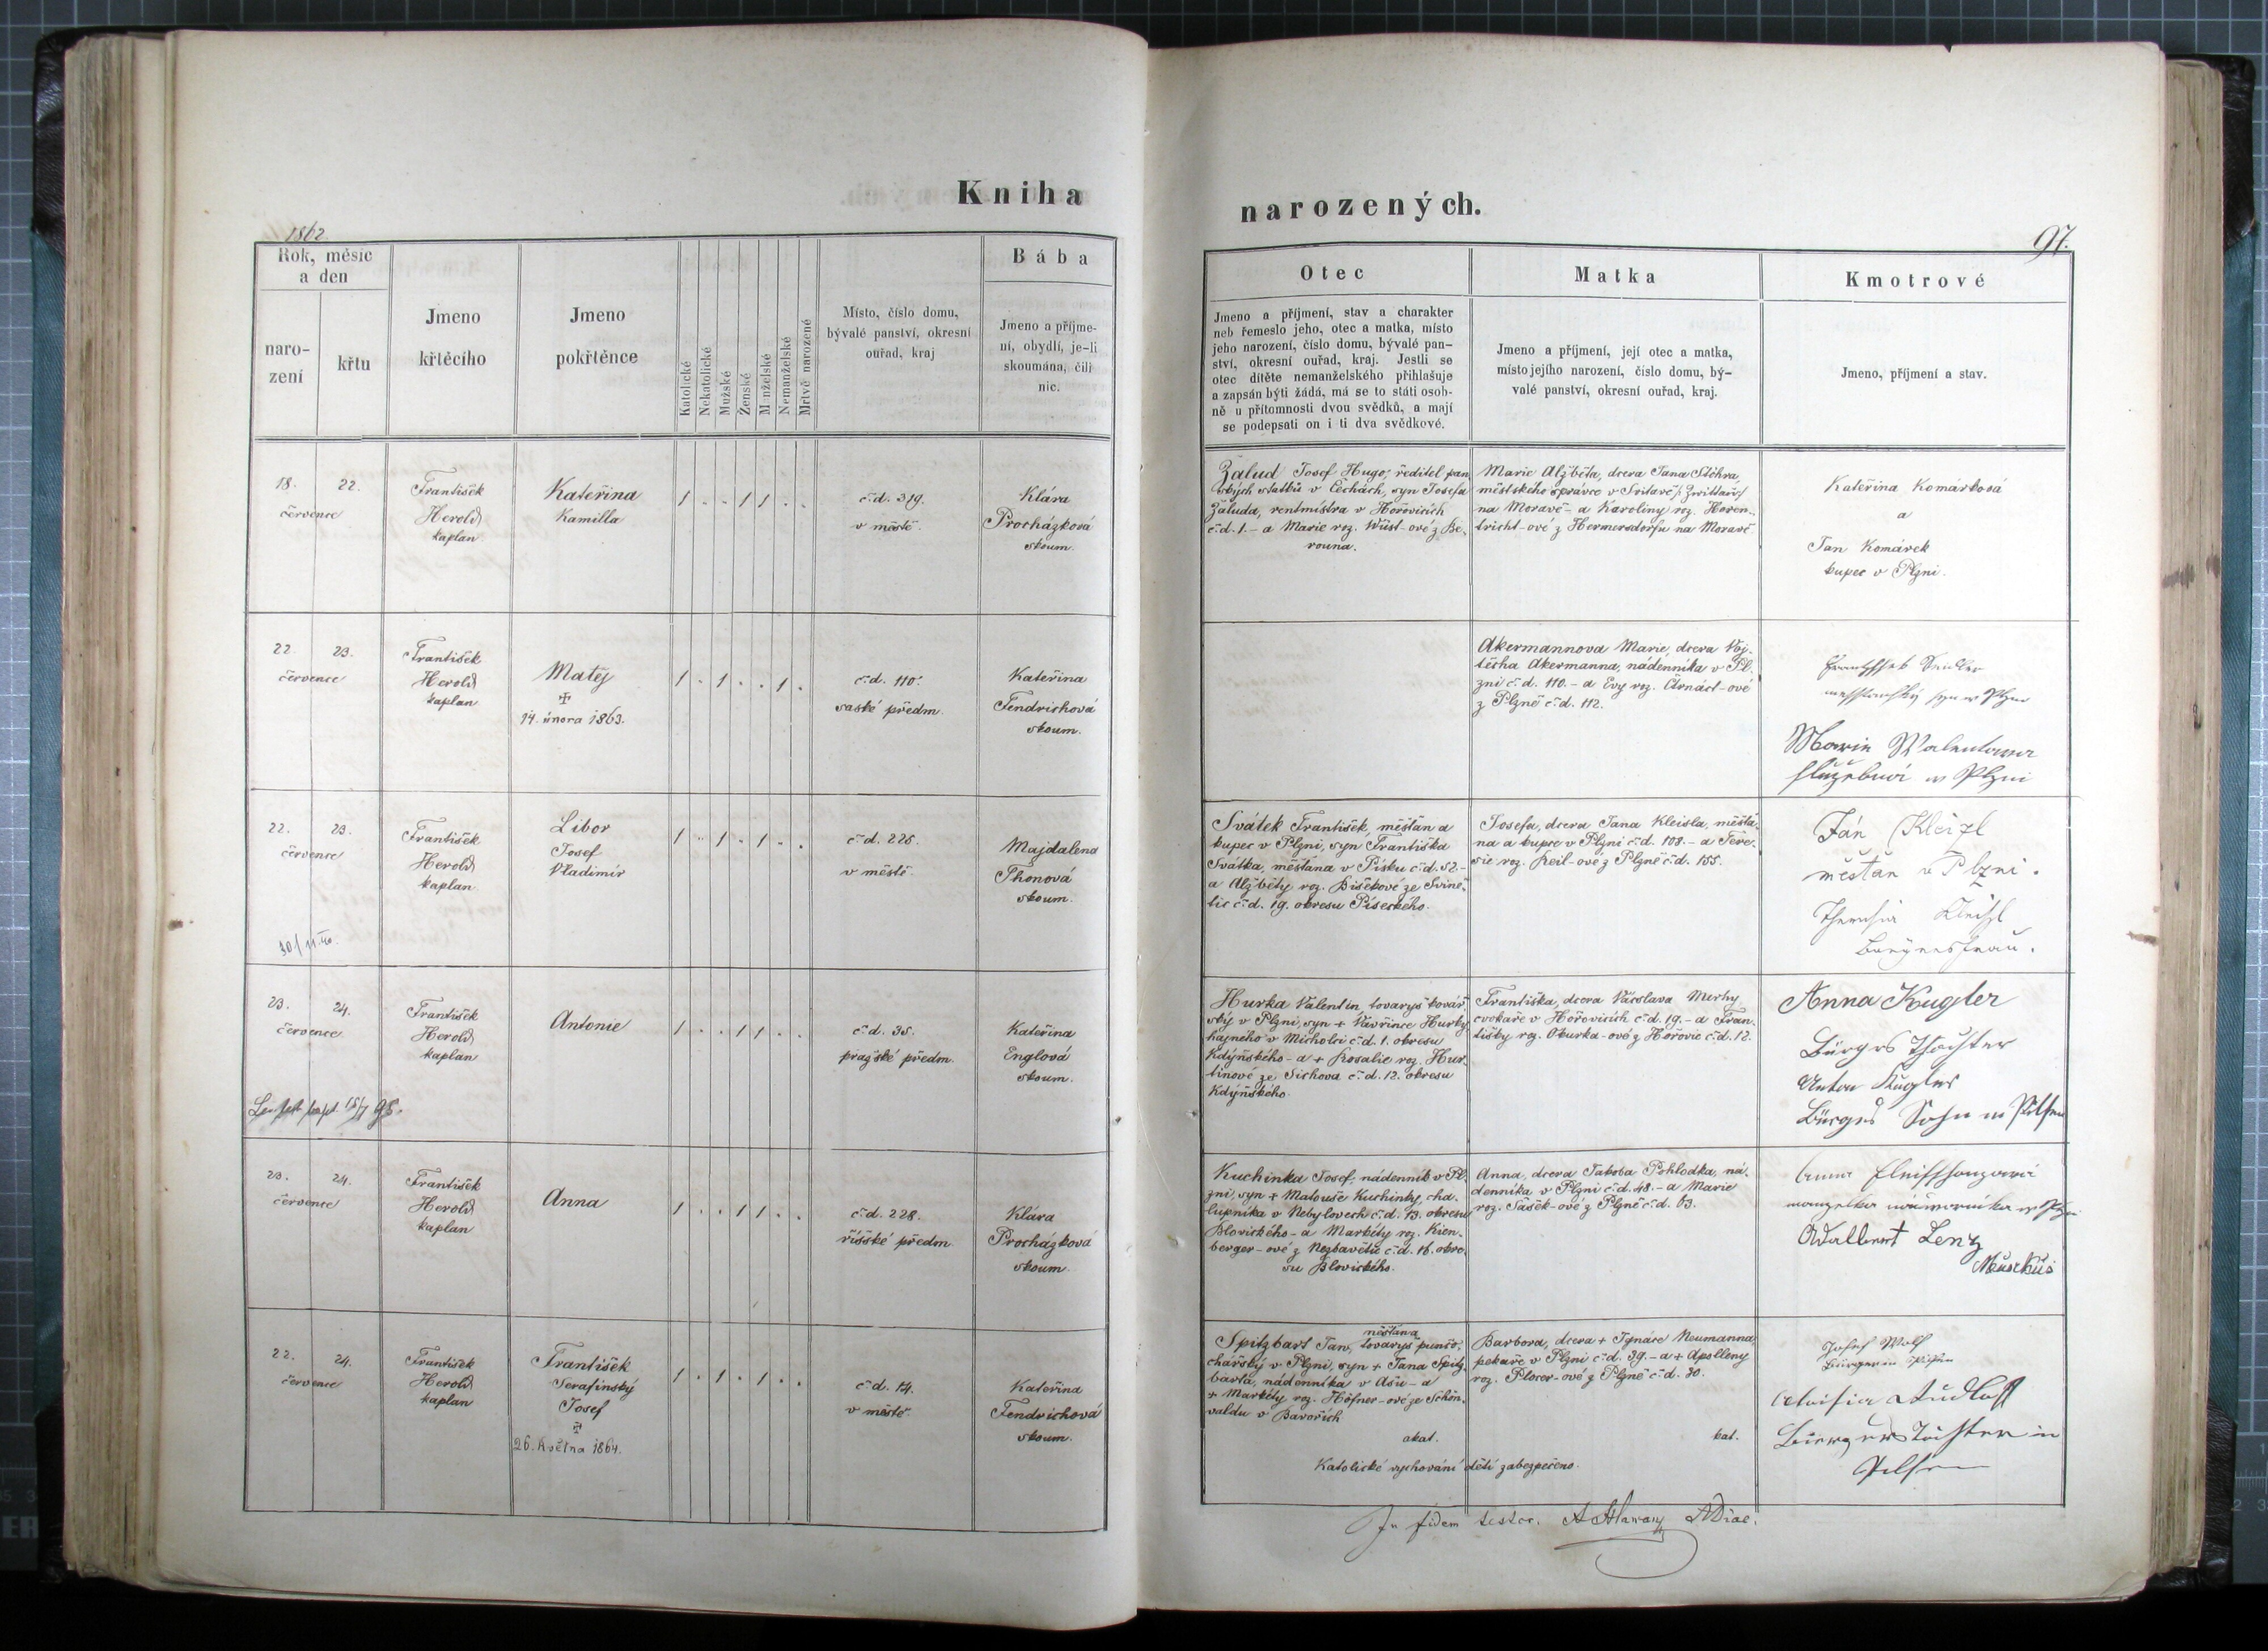 Kniha
1862.
Rok, měsíc
a den
naro-
zení
křtu
Jmeno
křtěcího
Jmeno
pokřtěnce
Katolické
Nekatolické
Mužské
Ženské
M nželské
Nemanželské
Mrtvě narozené
Místo, číslo domu,
bývalé panství, okresní
ouřad, kraj
Bába
Jmeno a příjme-
ní, obydlí, je-li
skoumána, čili
nic.
18. 22.
července
František
Herold
kaplan
Kateřina
Kamilla
1 . . 1 1 . .
č:d. 319.
v městě.
Klára
Procházková
skoum.
22. 23.
července
František
Herold
kaplan
Matěj
✠
14. února 1863.
1 . 1 . . 1 .
č:d. 110.
saské předm.
Kateřina
Fendrichová
skoum.
22. 23.
července
František
Herold
kaplan
Libor
Josef
Vladimír
1 . 1 . 1 . .
č:d. 225.
v městě.
Majdalena
Thonová
skoum.
30/11.40.
23. 24.
července
František
Herold
kaplan
Antonie
1 . . 1 1 . .
č:d. 35.
pražské předm.
Kateřina
Englová
skoum.
15/7 95.
23. 24.
července
František
Herold
kaplan
Anna
1 . . 1 1 . .
č:d. 228.
říšské předm.
Klára
Procházková
skoum.
22. 24.
července
František
Herold
kaplan
František
Serafinský
Josef
✠
26. května 1864.
1 . 1 . 1 . .
č:d. 14.
v městě.
Kateřina
Fendrichová
skoum.
narozených.
97.
Otec
Jmeno a příjmení, stav a charakter
neb řemeslo jeho, otec a matka, místo
jeho narození, číslo domu, bývalé pan-
ství, okresní ouřad, kraj. Jestli se
otec dítěte nemanželského přihlašuje
a zapsán býti žádá, má se to státi osob-
ně u přítomnosti dvou svědků, a mají
se podepsati on i ti dva svědkové.
Matka
Jmeno a příjmení, její otec a matka,
místo jejího narození, číslo domu, bý-
valé panství, okresní ouřad, kraj.
Kmotrové
Jmeno, příjmení a stav.
Žalud Josef Hugo, ředitel pan
ských statků v Čechách, syn Josefa
Žaluda, rentmistra v Hořovicích
č:d. 1. - a Marie roz. Wüst-ové z Be-
rouna.
Marie Alžběta, dcera Jana Stöhra,
městského správce v Svitavě
na Moravě - a Karoliny roz. Horen-
tricht-ové z Hermersdorfu na Moravě
Kateřina Komárková
a
Jan Komárek
kupec v Plzni.
Akermannova Marie, dcera Voj-
těcha Akermanna, nádenníka v Pl-
zni č:d. 110. - a Evy roz.
z Plzně č:d. 112.
syn w Plzni
Marie Walentowa
služebná w Plzni
Svátek František, měšťan a
kupec v Plzni, syn Františka
Svátka, měšťana v Písku č:d. 52. -
a Alžběty roz. Bisékové ze Svině-
tic č:d. 19. okresu Píseckého.
Josefa, dcera Jana Kleisla, měšťa-
na a kupce v Plzni č:d. 108. - a Tere-
sie roz. Keil-ové z Plzně č:d. 155.
Ján Kleizl
měšťan v Plzni.
Theresia Kleisl
Bürgersfrau.
Hurka Valentin, tovaryš kovář-
ský v Plzni, syn + Vavřince Hurky
hajného v Micholci č:d. 1. okresu
Kdyňského - a + Rosalie roz. Hur-
tinové ze Sichova č:d. 12. okresu
Kdyňského.
Františka, dcera Václava Merhy
cvokaře v Hořovicích č:d. 19. - a Fran-
tišky roz. Okurka-ové z Hořovic č:d. 12.
Anna Kugler
Bürgers Thochter
Anton Kugler
Bürgers Sohn in Pilsen
Kuchinka Josef, nádenník v Pl-
zni, syn + Matouše Kuchinky, cha-
lupníka v Nebylovech č:d. 13. okresu
Blovického - a Markéty roz. Kien-
berger-ové z Nezbavětic č:d. 16. okre-
su Blovického.
Anna, dcera Jakoba Pohlodka, ná-
denníka v Plzni č:d. 48. - a Marie
roz. Sašek-ové z Plzně č:d. 63.
Anna
manzelka
Adalbert Lenz
Musikus
Spitzbart Jan, měšťana tovaryš punčo-
chářský v Plzni, syn + Jana Spitz-
barta, nádenníka v Ašu - a
+ Markéty roz. Höfner-ové ze Schön-
valdu v Bavořích
akat.
Barbora, dcera + Ignáce Neumanna
pekaře v Plzni č:d. 39. - a + Apolleny
roz. Plocer-ové z Plzně č:d. 30.
kat.
Katolické vychování dětí zabezpečeno.
Josef Wolf
Bürger in Pilsen
Aloisia Rudloff
Bürgers Tochter in
Pilsen
In fidem testor.